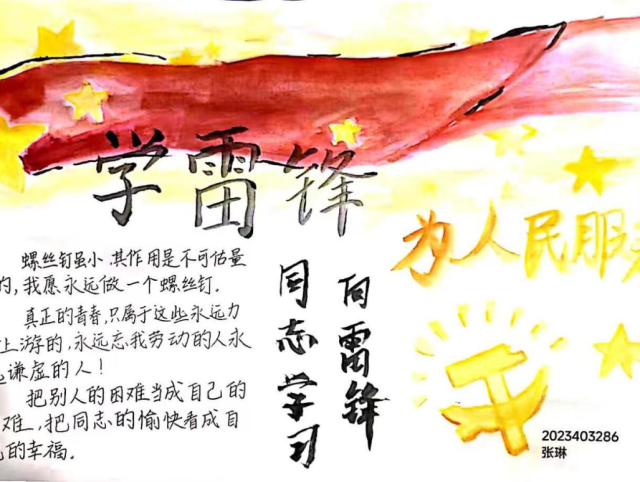 学雷锋
为人民服
向雷锋
同志学习
螺丝钉虽小,其作用是不可估量
的,我愿永远做一个螺丝钉.
真正的青春,只属于这些永远力
上游的,永远忘我劳动的人永
谦虚的人!
把别人的困难当成自己的
难,把同志的愉快看成自
的幸福.
2023403286
张琳